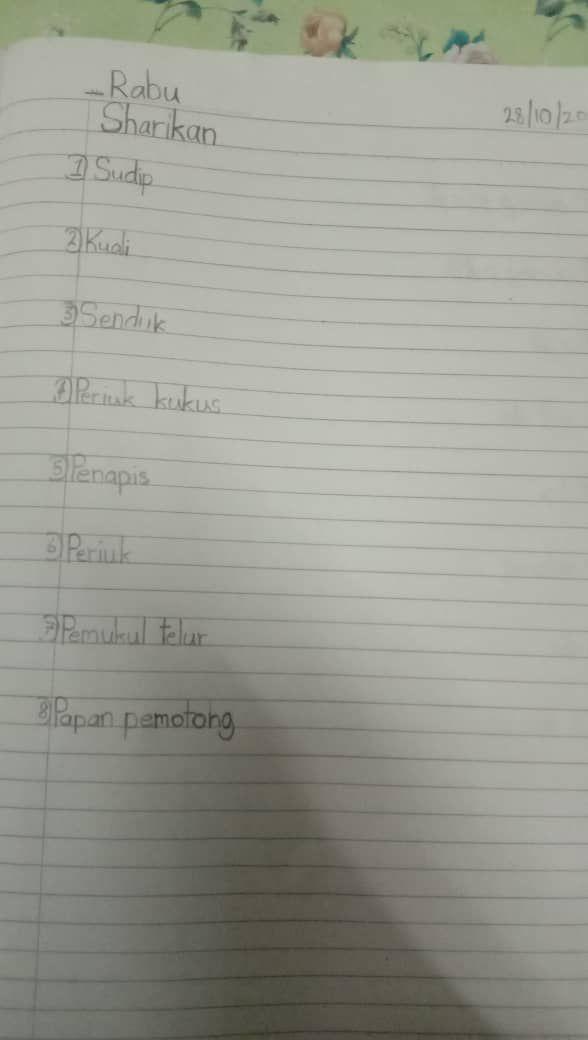 Rabu
28/10/20
Sharikan
1) Sudip
2) Kuali
3) Senduk
4) Periuk kukus
5) Penapis
6) Periuk
7) Pemukul telur
8) Papan pemotong